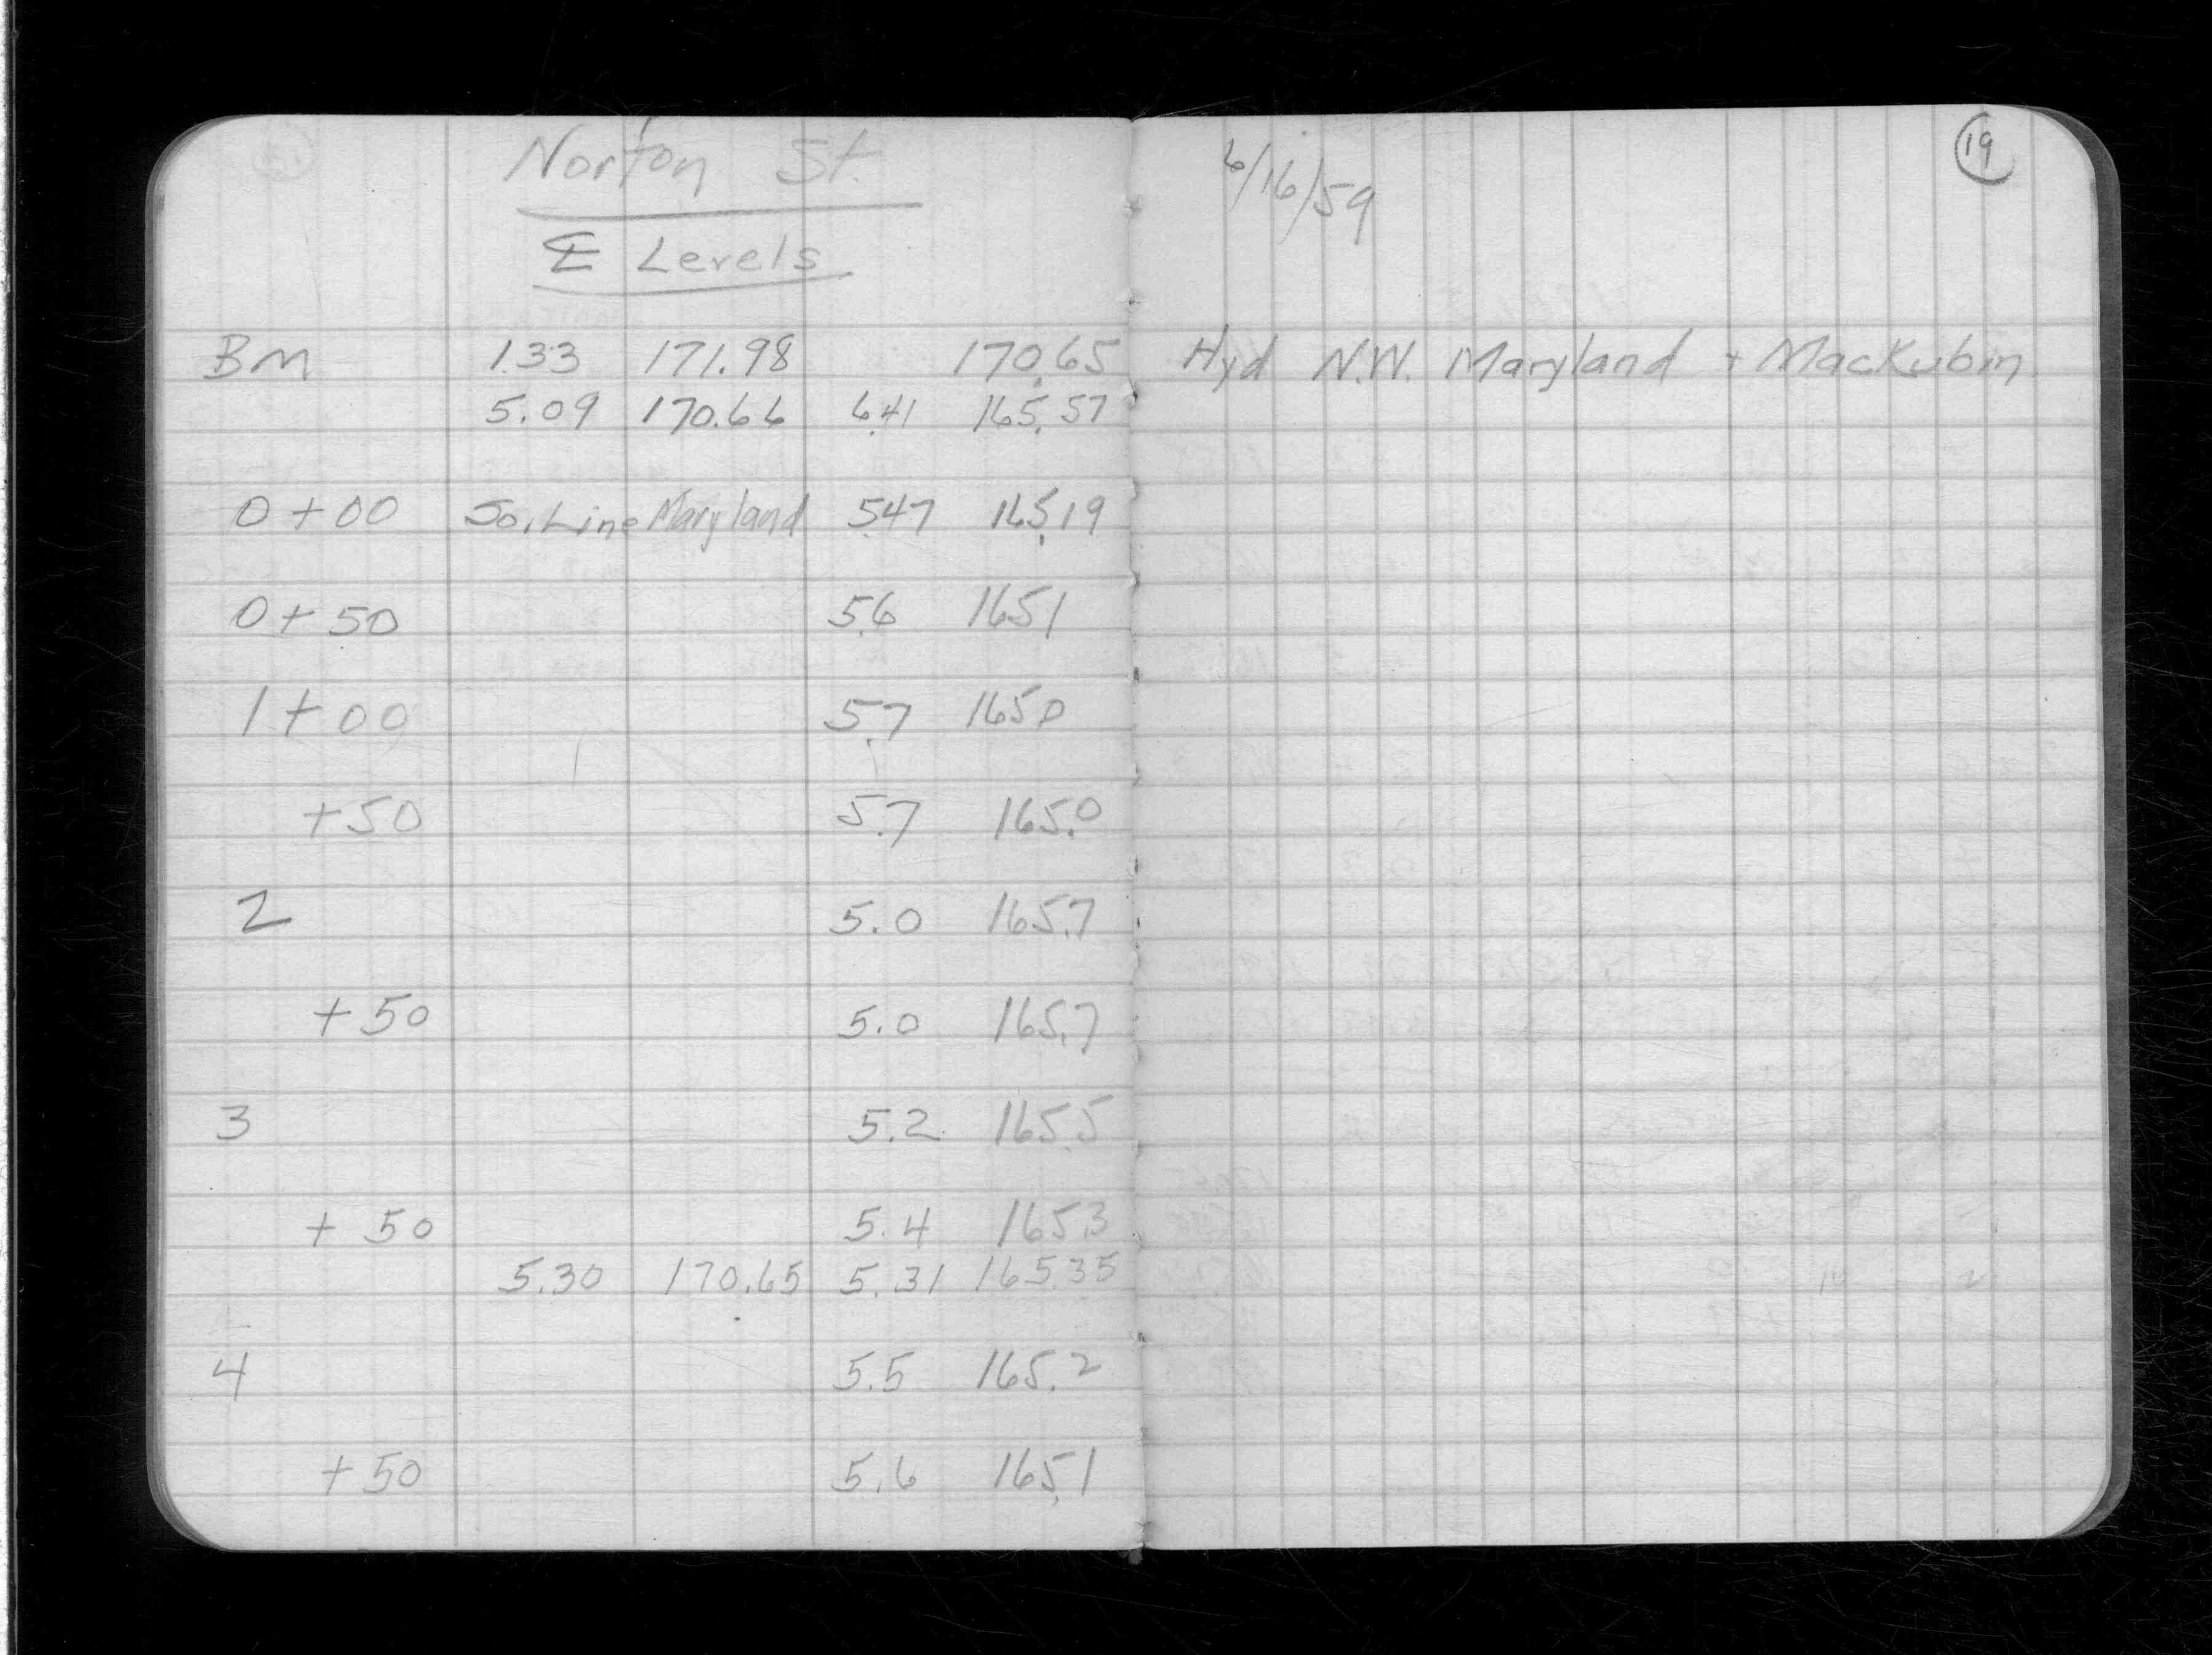 Norton St.
℄ Levels
BM 1.33 171.98 170.65
5.09 170.66 6.41 165.57
0+00 So. Line Maryland 5.47 165.19
0+50 5.6 165.1
1+00 5.7 165.0
+50 5.7 165.0
2 5.0 165.7
+50 5.0 165.7
3 5.2 165.5
+50 5.4 165.3
5.30 170.65 5.31 165.35
4 5.5 165.2
+50 5.6 165.1
6/16/59
19
Hyd N.W. Maryland + Mackubin